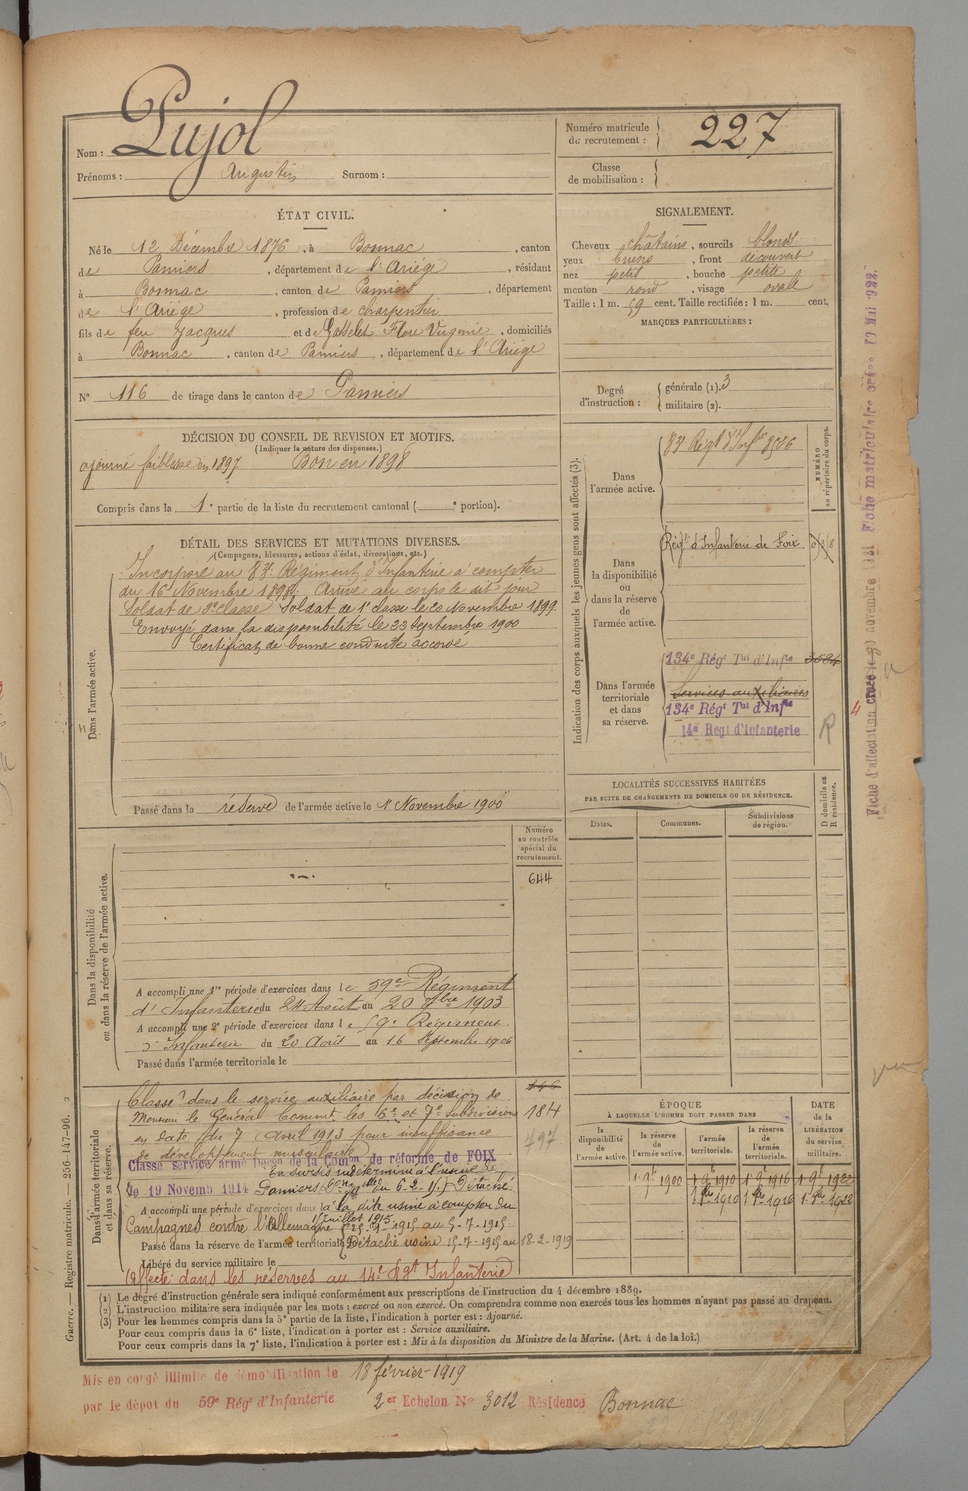 Nom : Pujol
Prénoms : Augustin Surnom :
Numéro matricule
du recrutement : 227
Classe
de mobilisation :
ÉTAT CIVIL.
Né le 12 Décembre 1876, à Bonnac, canton
de Pamiers, département de l'Ariége, résidant
à Bonnac, canton de Pamiers, département
de l'Ariége, profession de charpentier
fils de feu Jacques et de Gasselet Flore Virginie, domiciliés
à Bonnac, canton de Pamiers, département de l'Ariége
N° 116 de tirage dans le canton de Pamiers
SIGNALEMENT.
Cheveux châtains, sourcils blonds
yeux bruns, front découvert
nez petit, bouche petite
menton rond, visage ovale
Taille : 1 m. 59 cent. Taille rectifiée : 1 m. cent.
MARQUES PARTICULIÈRES :
Degré
d'instruction :
générale (1). 3
militaire (2).
DÉCISION DU CONSEIL DE REVISION ET MOTIFS.
(Indiquer la nature des dispenses.)
ajourné faiblesse en 1897 Bon en 1898
Compris dans la 1e partie de la liste du recrutement cantonal ( e portion).
DÉTAIL DES SERVICES ET MUTATIONS DIVERSES.
(Campagnes, blessures, actions d'éclat, décorations, etc.)
Dans l'armée active.
Incorporé au 83e Régiment d'Infanterie à compter
du 16 Novembre 1898. Arrivé au corps le dit jour
Soldat de 2e classe Soldat de 1e classe le 20 Novembre 1899
Envoyé dans la disponibilité le 23 Septembre 1900
Certificat de bonne conduite accordé
Passé dans la réserve de l'armée active le 1 Novembre 1900
Indication des corps auxquels les jeunes gens sont affectés (3).
NUMÉRO
au répertoire du corps.
Dans
l'armée active.
83e Régt d'Infie 8526
Dans
la disponibilité
ou
dans la réserve
de
l'armée active.
Régt d'Infanterie de Foix
Dans l'armée
territoriale
et dans
sa réserve.
134e Régt Tal d'Infie 3524
Services auxiliaires
134e Régt Tal d'Infie
14e Regt d'Infanterie
R
LOCALITÉS SUCCESSIVES HABITÉES
PAR SUITE DE CHANGEMENTS DE DOMICILE OU DE RÉSIDENCE.
Dates. Communes. Subdivisions
de région.
D domicile ou
R résidence.
Numéro
au contrôle
spécial du
recrutement.
644
Dans la disponibilité
ou dans la réserve de l'armée active.
A accompli une 1re période d'exercices dans le 59e Régiment
d'Infanterie du 24 Août au 20 7bre 1903
A accompli une 2e période d'exercices dans le 59e Régiment
d'Infanterie du 20 Août au 16 Septembre 1906
Passé dans l'armée territoriale le
Dans l'armée territoriale
et dans sa réserve.
Classé dans le service auxiliaire par décision de
Monsieur le Général Commt les 6e et 7e subdivisions 184
en date du 7 Avril 1913 pour insuffisance 497
de développement musculaire
Classé service armé Décon de la Comon de réforme de FOIX
En sursis indéterminé à l'usine de
de 19 Novemb 1914 Pamiers du 6-2-15. Détaché
A accompli une période d'exercices dans à la dite usine à compter du
1e juillet 1915
Campagnes contre l'Allemagne 1915 au 5-7-1915
Passé dans la réserve de l'armée territoriale Détaché usine 15-7-1915 au 18-2-1919
Libéré du service militaire le
Affecté dans les réserves au 14e Régt Infanterie
ÉPOQUE
À LAQUELLE L'HOMME DOIT PASSER DANS
DATE
de la
LIBÉRATION
du service
militaire.
la
disponibilité
de
l'armée active.
la
réserve
de
l'armée active.
l'armée
territoriale.
la
réserve
de l'armée
territoriale.
(1) Le degré d'instruction générale sera indiqué conformément aux prescriptions de l'instruction du 4 décembre 1889.
(2) L'instruction militaire sera indiquée par les mots : exercé ou non exercé. On comprendra comme non exercés tous les hommes n'ayant pas passé au drapeau.
(3) Pour les hommes compris dans la 5e partie de la liste, l'indication à porter est : Ajourné.
Pour ceux compris dans la 6e liste, l'indication à porter est : Service auxiliaire.
Pour ceux compris dans la 7e liste, l'indication à porter est : Mis à la disposition du Ministre de la Marine. (Art. 4 de la loi.)
Mis en congé illimité de démobilisation le 18 février-1919
par le dépot du 59e Rég d'Infanterie 2er Echelon No 3012 Résidence Bonnac
Guerre. — Registre matricule. — 256-147-96.